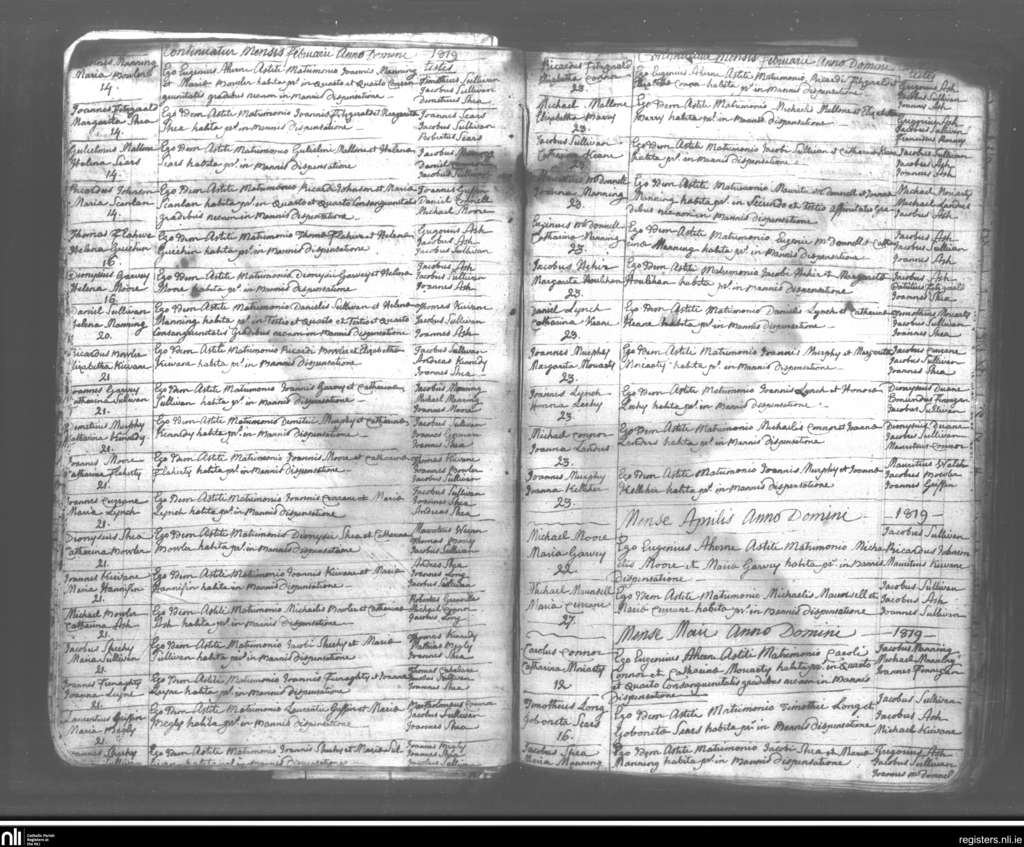 Continuatur Mensis Februarii Anno Domini 1819
testes
Joannis Manning
Maria Bowler
14.
Ego Eugenius Aherne Astiti Matrimonio Joannis Manning
et Maria Bowler habita prs. in Quarto et Quarto
gradibus necnon in Mannis Dispensatione
Timotheus Sullivan
Jacobus Sullivan
Demetrius Shea
Joannes Fitzgerald
Margarita Shea
14.
Ego Idem Astiti Matrimonio Joannis Fitzgerald et Margarita
Shea habita prs. in Mannis Dispensatione
Joannes Sears
Jacobus Sullivan
Robertus Sears
Gulielmus Mallone
Helena Sears
14
Ego Idem Astiti Matrimonio Gulielmi Mallone et Helena
Sears habita prs. in Mannis dispensatione
Jacobus Manning
Daniel
Jacobus Sullivan
Ricardus Johnson
Maria Scanlan
14.
Ego Idem Astiti Matrimonio Ricardi Johnson et Maria
Scanlan habita prs. in Quarto et Quarto Consanguinitatis
gradibus necnon in Mannis dispensatione
Joannes Griffin
Daniel Connell
Michael Moore
Thomas Flahive
Helena Guihin
16
Ego Idem Astiti Matrimonio Thoma Flahive et Helena
Guihin habita prs. in Mannis Dispensatione
Gregorius Ash
Jacobus Ash
Jacobus Sullivan
Dionysius Garvey
Helena Moore
16
Ego Idem Astiti Matrimonio Dionysii Garvey et Helena
Moore habita prs. in Mannis Dispensatione
Jacobus Ash
Jacobus Sullivan
Joannes Ash
Daniel Sullivan
Helena Manning
20.
Ego Idem Astiti Matrimonio Danielis Sullivan et Helena
Manning habita prs. in Tertio et Quarto et Tertio et Quarto
Consanguinitatis Gradibus necnon in Mannis Dispensatione
Thomas Kirvane
Jacobus Sullivan
Joannes Ash
Ricardus Bowler
Elizabetha Kirvane
21
Ego Idem Astiti Matrimonio Ricardi Bowler et Elizabetha
Kirvane habita prs. in Mannis Dispensatione
Jacobus Sullivan
Andreas Kennedy
Joannes Shea
Joannes Garvey
Catharina Sullivan
21.
Ego Idem Astiti Matrimonio Joannis Garvey et Catharina
Sullivan habita prs. in Mannis Dispensatione
Jacobus Manning
Michael Manning
Joannes Moore
Demetrius Murphy
Catharina Kennedy
21.
Ego Idem Astiti Matrimonio Demetrii Murphy et Catharina
Kennedy habita prs. in Mannis Dispensatione
Jacobus Sullivan
Joannes Shea
Joannes Moore
Catharina Flaherty
21.
Ego Idem Astiti Matrimonio Joannis Moore et Catharina
Flaherty habita prs. in Mannis Dispensatione
Thomas Kirvane
Joannes Bowler
Jacobus Sullivan
Joannes Currane
Maria Lynch
21.
Ego Idem Astiti Matrimonio Joannis Currane et Maria
Lynch habita prs. in Mannis Dispensatione
Jacobus Sullivan
Joannes Shea
Andreas Shea
Dionysius Shea
Catharina Bowler
21.
Ego Idem Astiti Matrimonio Dionysii Shea et Catharina
Bowler habita prs. in Mannis Dispensatione
Jacobus Sullivan
Joannes Kirvane
Maria Hannifin
21.
Ego Idem Astiti Matrimonio Joannis Kirvane et Maria
Hannifin habita prs. in Mannis dispensatione
Joannes Long
Jacobus Sullivan
Michael Bowler
Catharina Ash
21.
Ego Idem Astiti Matrimonio Michaelis Bowler et Catharina
Ash habita prs. in Mannis dispensatione
Michael Connor
Jacobus Long
Jacobus Sheehy
Maria Sullivan
21.
Ego Idem Astiti Matrimonio Jacobi Sheehy et Maria
Sullivan habita prs. in Mannis Dispensatione
Thomas Kennedy
Joannes Shea
Joannes Finaghty
Joanna Leyne
21.
Ego Idem Astiti Matrimonio Joannis Finaghty et Joanna
Leyne habita prs. in Mannis dispensatione
Jacobus Sullivan
Joannes Shea
Laurentius Griffin
Maria Begly
21
Ego Idem Astiti Matrimonio Laurentii Griffin et Maria
Begly habita prs. in Mannis dispensatione
Jacobus Sullivan
Joannes Shea
Joannes Sheehy
Ego Idem Astiti Matrimonio Joannis Sheehy et Maria Sul
livan habita prs. in Mannis Dispensatione
Continuatur Mensis Februarii Anno Domini
testes
Ricardus Fitzgerald
Elizabetha Connor
23.
Ego Eugenius Aherne Astiti Matrimonio Ricardi Fitzgerald et
Elizabetha Connor habita prs. in Mannis dispensatione
Gregorius Ash
Jacobus Sullivan
Joannes Ash
Michael Mallone
Elizabetha Marry
23.
Ego Idem Astiti Matrimonio Michaelis Mallone et Elizabetha
Marry habita prs. in Mannis dispensatione
Gregorius Ash
Jacobus Sullivan
Jacobus Sullivan
Catharina Keane
23.
Ego Idem Astiti Matrimonio Jacobi Sullivan et Catharina Keane
habita prs. in Mannis Dispensatione
Jacobus Sullivan
Jacobus Ash
Joannes Ash
Mauritius McDonnell
Joanna Manning
23.
Ego Idem Astiti Matrimonio Mauritii McDonnell et Joanna
Manning habita prs. in Secundo et Tertio affinitatis Gra
dibus necnon in Mannis dispensatione
Michael Moriarty
Michael Landers
Jacobus Ash
Eugenius McDonnell
Catharina Manning
23.
Ego Idem Astiti Matrimonio Eugenii McDonnell et Catha
rina Manning habita prs. in Mannis Dispensatione
Jacobus Ash
Jacobus Sullivan
Joannes Ash
Jacobus Hehir
Margarita Houlihan
23.
Ego Idem Astiti Matrimonio Jacobi Hehir et Margarita
Houlihan habita prs. in Mannis dispensatione
Jacobus Ash
Joannes Shea
Daniel Lynch
Catharina Keane
23.
Ego Idem Astiti Matrimonio Danielis Lynch et Catharina
Keane habita prs. in Mannis Dispensatione
Timotheus Moriarty
Jacobus Sullivan
Joannes Shea
Joannes Murphy
Margarita Moriarty
23.
Ego Idem Astiti Matrimonio Joannis Murphy et Margarita
Moriarty habita prs. in Mannis Dispensatione
Jacobus Currane
Jacobus Sullivan
Joannes Shea
Joannes Lynch
Honoria Leehy
23
Ego Idem Astiti Matrimonio Joannis Lynch et Honoria
Leehy habita prs. in Mannis dispensatione
Dionysius Duane
Edmundus Finegan
Jacobus Sullivan
Michael Connor
Joanna Landers
23.
Ego Idem Astiti Matrimonio Michaelis Connor et Joanna
Landers habita prs. in Mannis Dispensatione
Dionysius Duane
Jacobus Sullivan
Mauritius Connor
Joannes Murphy
Joanna Kelliher
23.
Ego Idem Astiti Matrimonio Joannis Murphy et Joanna
Kelliher habita prs. in Mannis dispensatione
Mauritius Walsh
Jacobus Bowler
Joannes Griffin
Mense Aprilis Anno Domini 1819
Michael Moore
Maria Garvey
22
Ego Eugenius Aherne Astiti Matrimonio Micha
elis Moore et Maria Garvey habita prs. in Mannis
Dispensatione
Jacobus Sullivan
Ricardus Johnson
Mauritius Kirvane
Michael Mansell
Maria Currane
27.
Ego Idem Astiti Matrimonio Michaelis Maunsell et
Maria Currane habita prs. in Mannis Dispensatione
Jacobus Sullivan
Jacobus Ash
Joannes Sullivan
Mense Maii Anno Domini 1819
Carolus Connor
Catharina Moriarty
12
Ego Eugenius Aheren Astiti Matrimonio Caroli
Connor et Catharina Moriarty habita prs. in Quarto
et Quarto Consanguinitatis gradibus necnon in Mannis
Dispensatione
Jacobus Manning
Michael Manning
Joannes Finnigan
Timotheus Long
Goboneta Sears
16.
Ego Idem Astiti Matrimonio Timothei Long et
Goboneta Sears habita prs. in Mannis dispensatione
Jacobus Sullivan
Jacobus Ash
Michael Kirvane
Jacobus Shea
Maria Manning
Ego Idem Astiti Matrimonio Jacobi Shea et Maria
Manning habita prs. in Mannis dispensatione
Gregorius Ash
Jacobus Sullivan
Joannes McDonnell
nli
Catholic Parish
Registers at
the NLI
registers.nli.ie